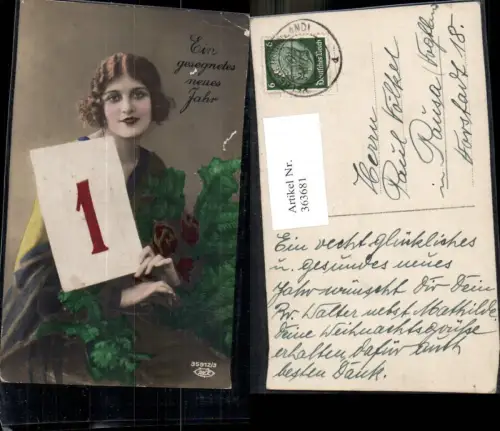 Ein
gesegnetes
neues
Jahr
1
35912/3
6
Deutsches Reich
Artikel Nr.
363681
Herrn
Paul Völkel
in Pausa /Vogtland
Vorstadt 18.
Ein recht glückliches
u. gesundes neues
Jahr wünscht Dir Dein
Br. Walter nebst Mathilde.
Deine Weihnachtsgrüße
erhalten, dafür auch
besten Dank.